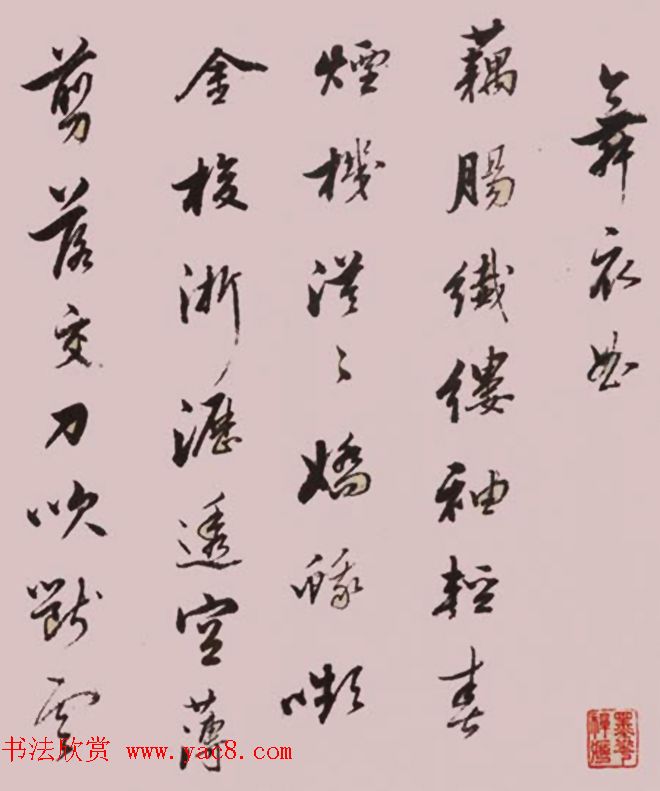 舞衣曲
藕腸纖縷袖輕春
煙機漠〻嬌蛾嚬
金梭淅瀝透空薄
剪落交刀吹斷雲
书法欣赏 www.yac8.com